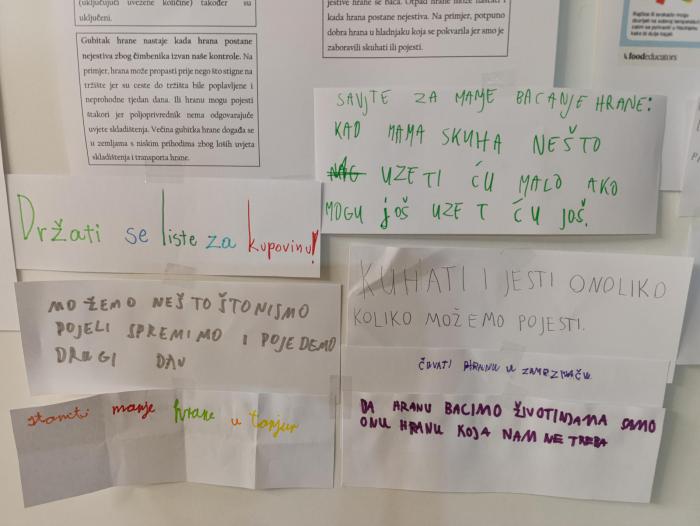 (uključujući uvezene količine) također su
uključeni.
kada hrana postane nejestiva. Na primjer, potpuno
dobra hrana u hladnjaku koja se pokvarila jer smo je
zaboravili skuhati ili pojesti.
foodeducators
Gubitak hrane nastaje kada hrana postane
nejestiva zbog čimbenika izvan naše kontrole. Na
primjer, hrana može propasti prije nego što stigne na
tržište jer su ceste do tržišta bile poplavljene i
neprohodne tjedan dana. Ili hranu mogu pojesti
štakori jer poljoprivrednik nema odgovarajuće
uvjete skladištenja. Većina gubitka hrane događa se
u zemljama s niskim prihodima zbog loših uvjeta
skladištenja i transporta hrane.
SAVJTE ZA MANJE BACANJE HRANE:
KAD MAMA SKUHA NEŠTO
UZETI ĆU MALO AKO
MOGU JOŠ UZET ĆU JOŠ.
Držati se liste za kupovinu!
KUHATI I JESTI ONOLIKO
KOLIKO MOŽEMO POJESTI.
MOŽEMO NEŠTO ŠTO NISMO
POJELI SPREMIMO I POJEDEMO
DRUGI DAN
ČUVATI HRANU U ZAMRZIVAČU
stavcti manje hrane u tanjur
DA HRANU BACIMO ŽIVOTINJAMA SAMO
ONU HRANU KOJA NAM NE TREBA